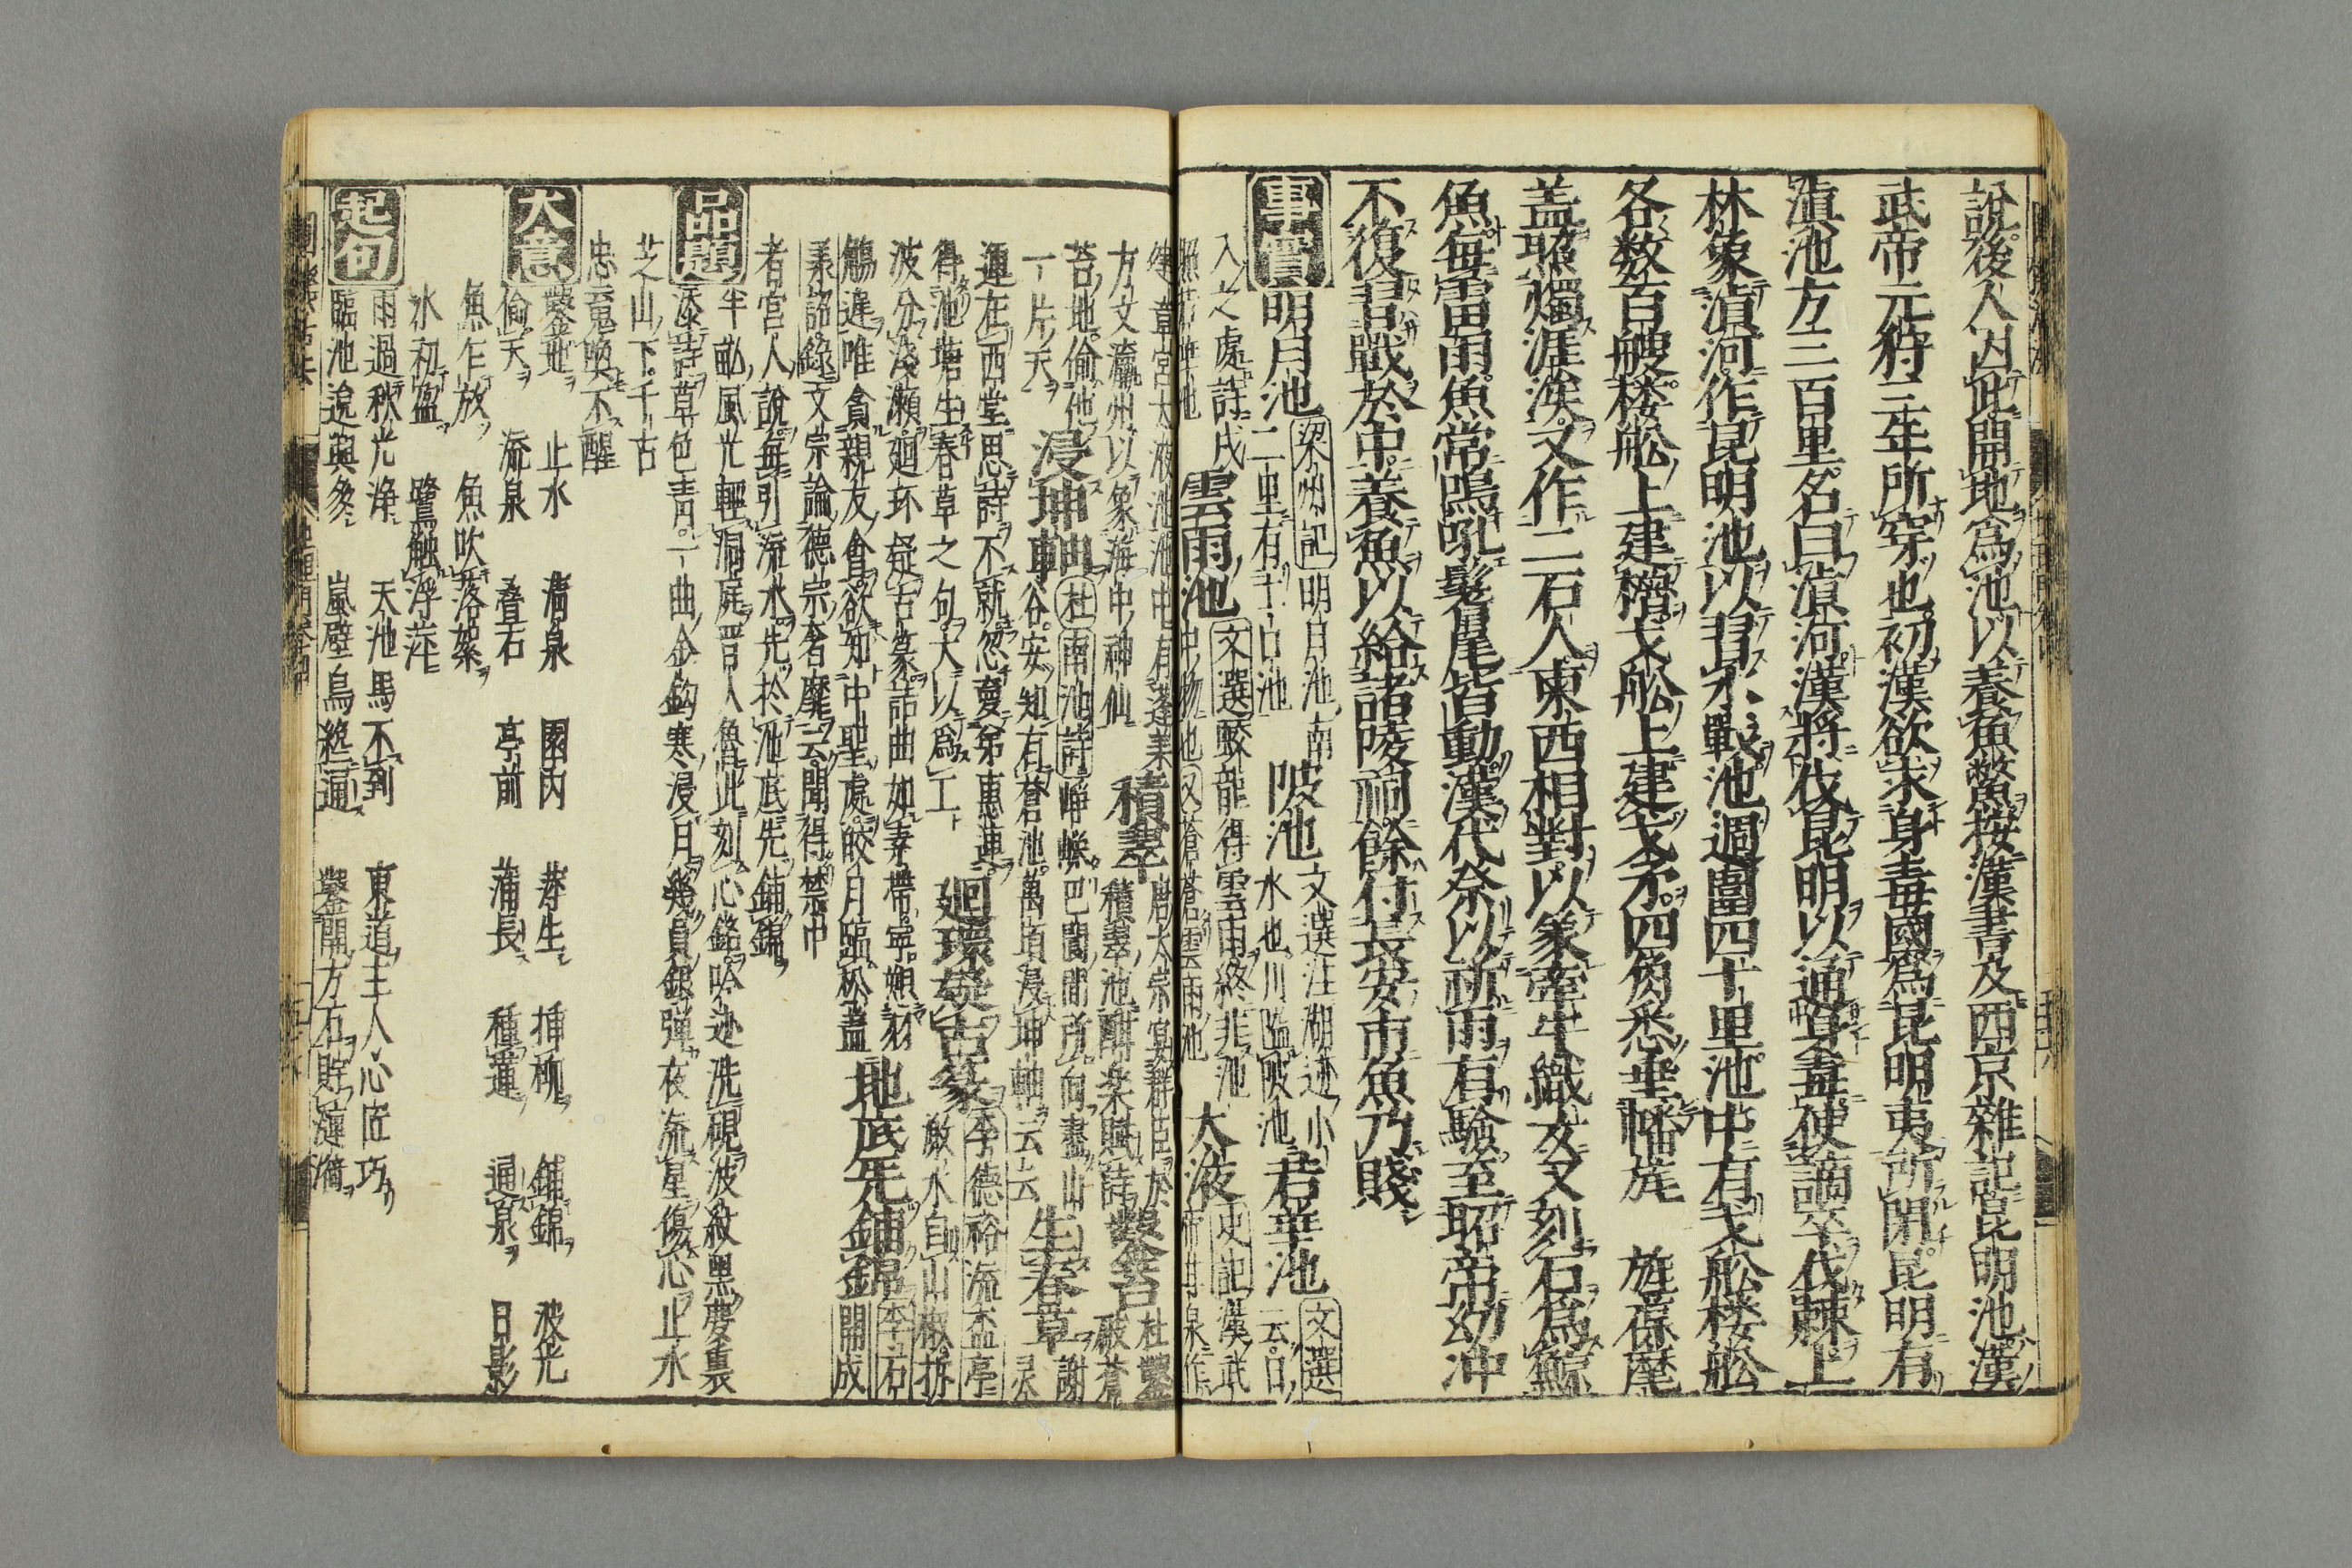 說後人因此開地爲池以養魚鱉按漢書及西京雜記昆明池漢
武帝元狩三年所穿也初漢欲求身毒國爲昆明夷所閉昆明有
滇池方三百里名曰滇河漢將伐昆明以通身毒使謫卒伐棘上
林象滇河作昆明池以習水戰池週圍四十里池中有戈舩楼舩
各数百艘楼舩上建櫓戈舩上建戈矛四角悉垂幡旄旌葆麾
盖照燭涯涘又作二石人東西相對以象牽牛織女又刻石爲鯨
魚每雷雨魚常鳴吼髦尾皆動漢代祭以祈雨有驗至昭帝幼冲
不復習戰於中養魚以給諸陵祠餘付長安市魚乃賤
事實
明月池
梁州記明月池南
二里有十口池
陂池
文選注湖迹小
水也川隘陂池
若華池
文選
云口
入之處註咸
雲雨池
文選蛟龍得雲雨終非池
中物也又蒼蒼雲雨池
大液
史記漢武
照若華也
建章宮太液池池中有蓬萊
方丈瀛州以象海中神仙
積翠
唐太宗宴群臣於
積翠池酣楽賦詩
鑿蒼苔
杜鑿
破蒼
苔地偷他
一片天
浸坤軸
杜南池詩崢嶸巴閬間所向盡山
谷安知有蒼池萬頃浸坤軸云云
生春草
謝
灵
運在西堂思詩不就忽夢弟惠連
得池塘生春草之句大以爲工
廻環疑古篆
李德裕流盃亭
激水自山椒拆
波分淺瀬廻环疑古篆詰曲如素帶寧愬羽
觴遅唯貪親友會欲知中聖處皎月臨松蓋
地底先鋪錦
李石
開成
承詔錄文宗論德宗奢靡云聞得禁中
者宮人說每引流水先於池底先鋪錦
品題
半畝風光輕洞庭習人魯此刻心銘吟迹洗硯波紋黒夢裏
添詩草色青一曲金鈎寒浸月幾員銀弾夜流星傷心止水
芝山下千古
忠寃喚不醒
大意
鑿地 止水 清泉 園内 芹生 挿栁 鋪錦 波光
偷天 流泉 叠石 亭前 蒲長 種蓮 通泉 日影
魚乍放 魚吹落絮
水初盈 鷺触浮萍
起句
雨過秋光淨 天池馬不到 東道主人心匠巧
臨池逸興多 嵐壁鳥緫逼 鑿開方石貯漣漪